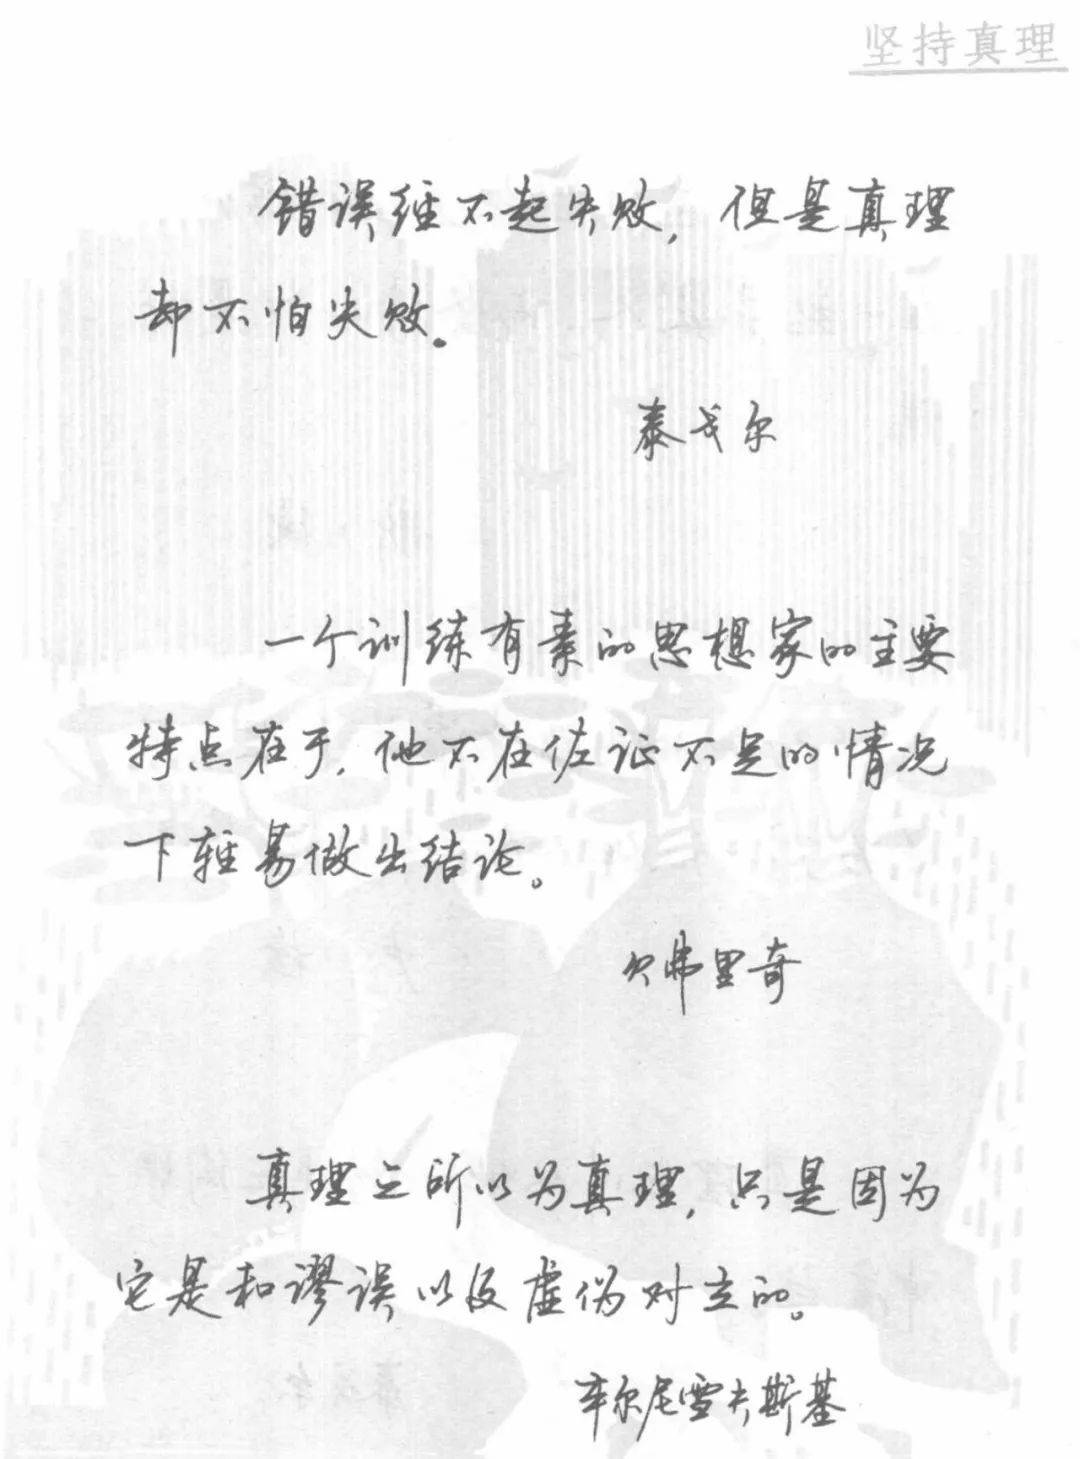 坚持真理
错误经不起失败，但是真理
却不怕失败。
泰戈尔
一个训练有素的思想家的主要
特点在于，他不在佐证不足的情况
下轻易做出结论。
贝弗里奇
真理之所以为真理，只是因为
它是和谬误以及虚伪对立的。
车尔尼雪夫斯基